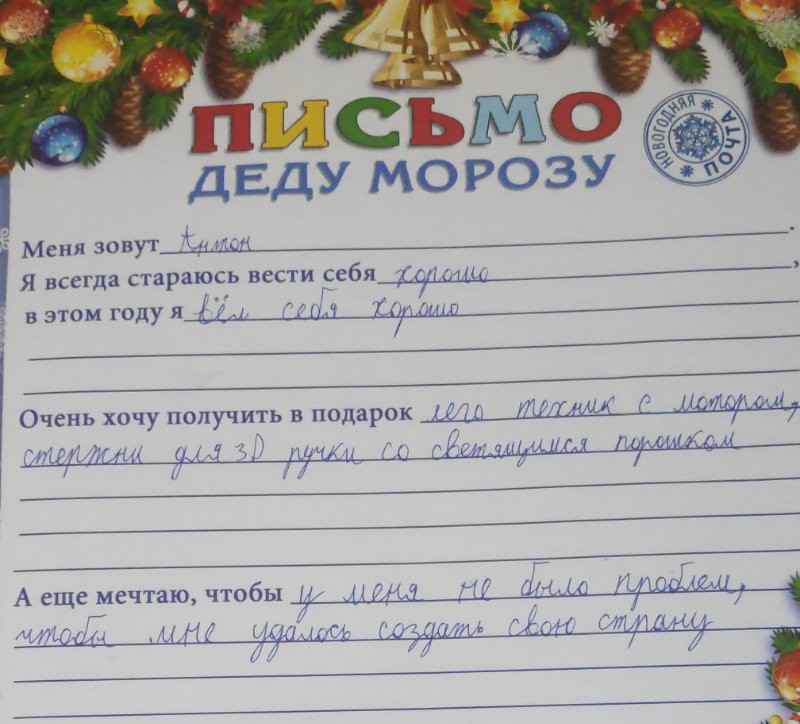 ПИСЬМО
ДЕДУ МОРОЗУ
НОВОГОДНЯЯ ПОЧТА
Меня зовут Антон.
Я всегда стараюсь вести себя хорошо,
в этом году я вёл себя хорошо
Очень хочу получить в подарок лего техник с мотором,
стержни для 3D ручки со светящимся порошком
А еще мечтаю, чтобы у меня не было проблем,
чтобы мне удалось создать свою страну